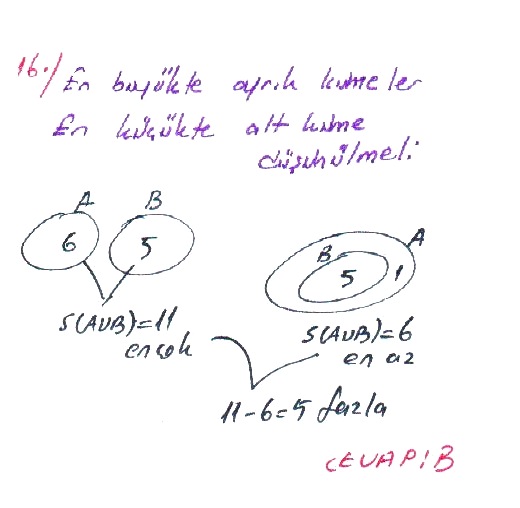 16./ En büyükte ayrık kümeler
En küçükte alt küme
düşünülmeli
A B
6 5
S(AUB)=11
en çok
A
B
5 1
S(AUB)=6
en az
11-6=5 fazla
CEVAP:B